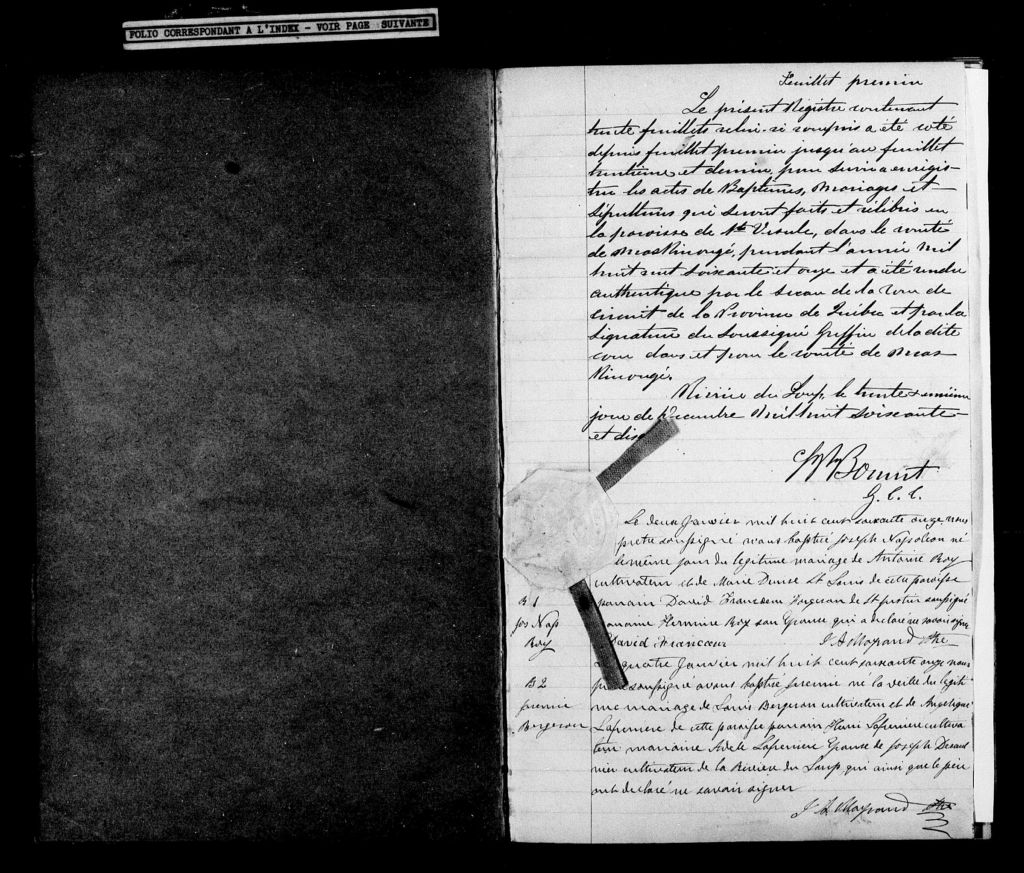 FOLIO CORRESPONDANT A L'INDEX - VOIR PAGE SUIVANTE
Feuillet premier
Le présent Registre contenant
trente feuillets celui-ci compris a été coté
depuis feuillet premier jusqu'au feuillet
trentième et dernier, pour servir a enrégis-
trer les actes de Baptêmes, Mariages et
Sépultures qui seront faits et célébrés en
la paroisse de Ste Ursule, dans le comté
de Maskinongé, pendant l'année mil
huit cent soixante et onze et a été rendu
authentique par le sceau de la Cour de
circuit de la Province de Québec et par la
signature du Soussigné Greffier de la dite
cour dans et pour le comté de Mas-
kinongé.
Rivière du Loup, le trente
jour de Décembre Mil huit soixante-
et dix
G. C. C.
Le deux Janvier mil huit cent soixante onze nous
prêtre soussigné avons baptisé Joseph Napoléon né
le même jour du légitime mariage de Antoine Roy
cultivateur et de Marie St Louis de cette paroisse
parrain David Francoeur de St Justin soussigné
marraine Hermine Roy son Epouse qui a déclaré ne savoir signer
David Francoeur J A Mayrand Ptre
B 1
Jos Nap
Roy
quatre Janvier mil huit cent soixante onze nous
soussigné avons baptisé né la veille du légiti-
B 2
Bergeron
me mariage de Louis Bergeron cultivateur et de Angelique
Lafreniere de cette paroisse parrain Henri Lafreniere cultiva-
teur marraine Adele Lafreniere Epouse de Joseph
cultivateur de la Rivière du Loup qui ainsi que le père
ont déclaré ne savoir signer
J A Mayrand Ptre